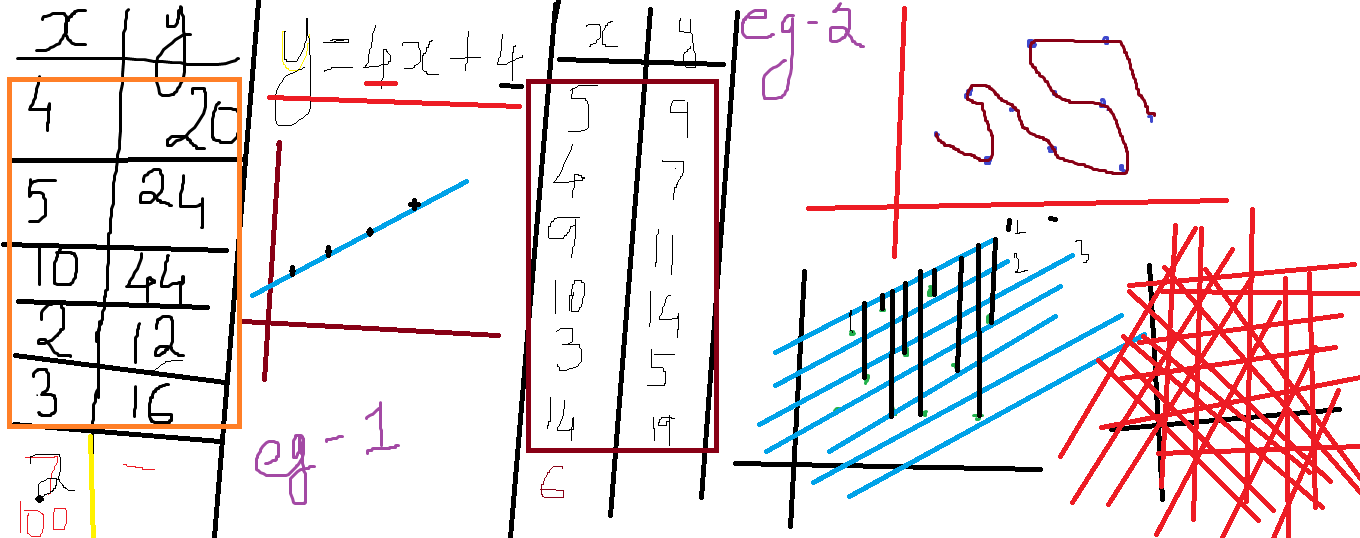 x y
4 20
5 24
10 44
2 12
3 16
7 -
100
y = 4x + 4
eg - 1
x y
5 9
4 7
9 11
10 14
3 5
14 19
6
eg - 2
1
2
3